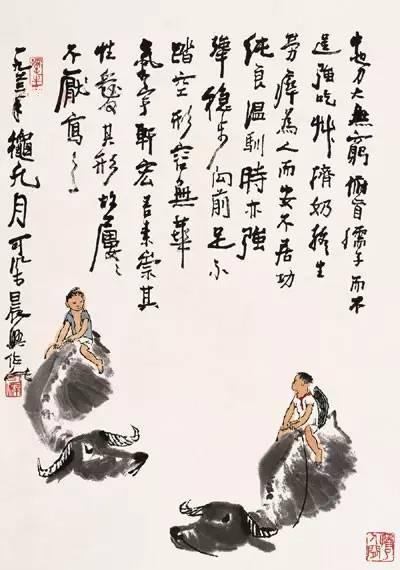 牛也力大無窮俯首孺子而不
逞強吃艸擠奶終生
勞瘁為人而安不居功
純良溫馴時亦強
犟穩步向前足不
踏空形容無華
氣宇軒宏吾素崇其
性愛其形故屢〻
不厭寫之
一九六年龝九月可染晨興作